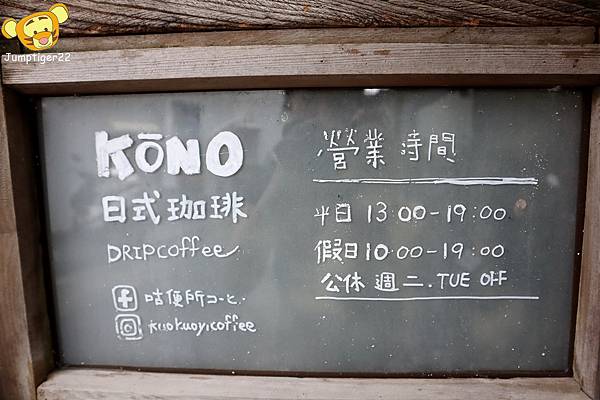 Jumptiger22
KŌNO
日式珈琲
DRIPCoffee
咕便所コーヒー
營業時間
平日 13:00-19:00
假日 10:00-19:00
公休 週二.TUE OFF